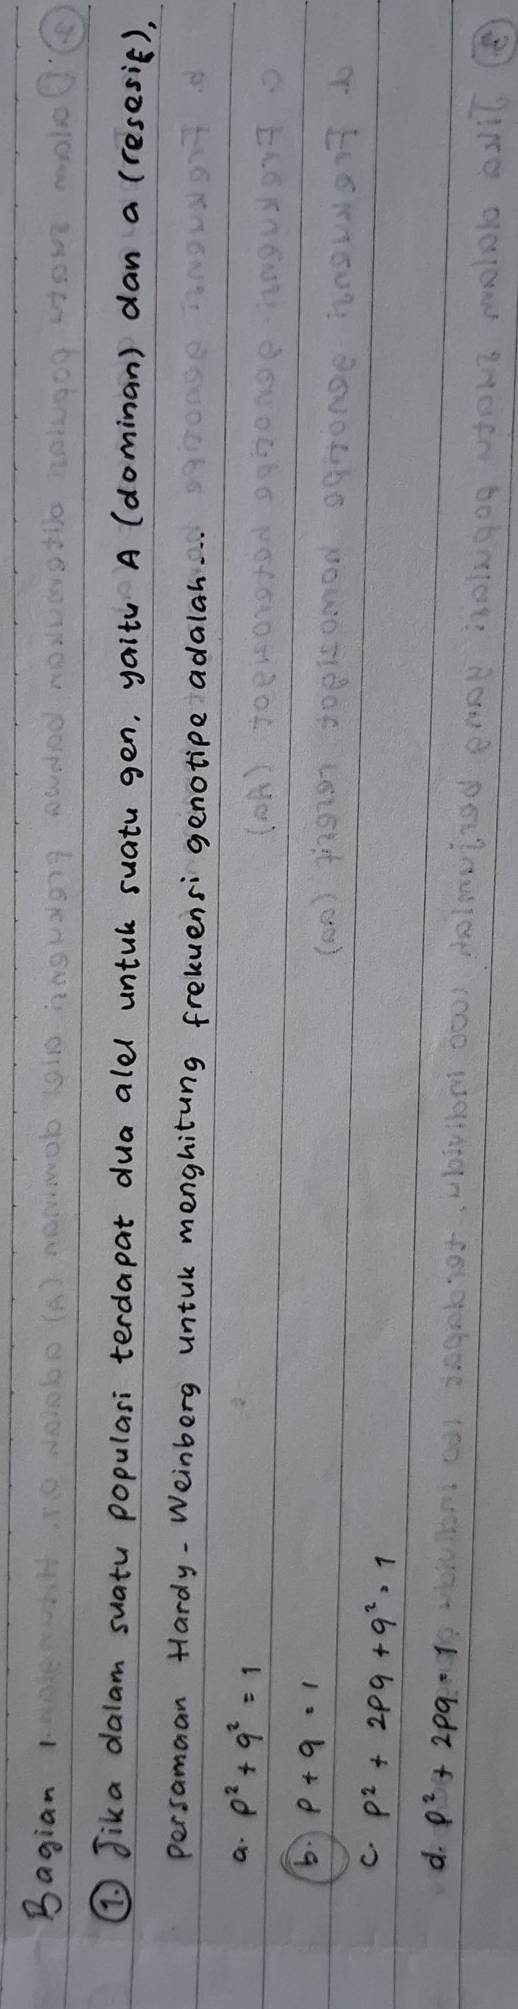 Bagian 1.
1. Jika dalam suatu populasi terdapat dua alel untuk suatu gen, yaitu A (dominan) dan a (resesif),
persamaan Hardy-Weinberg untuk menghitung frekuensi genotipe adalah...
a. p² + q² = 1
b. p + q = 1
c. p² + 2pq + q² = 1
d. p² + 2pq = 1